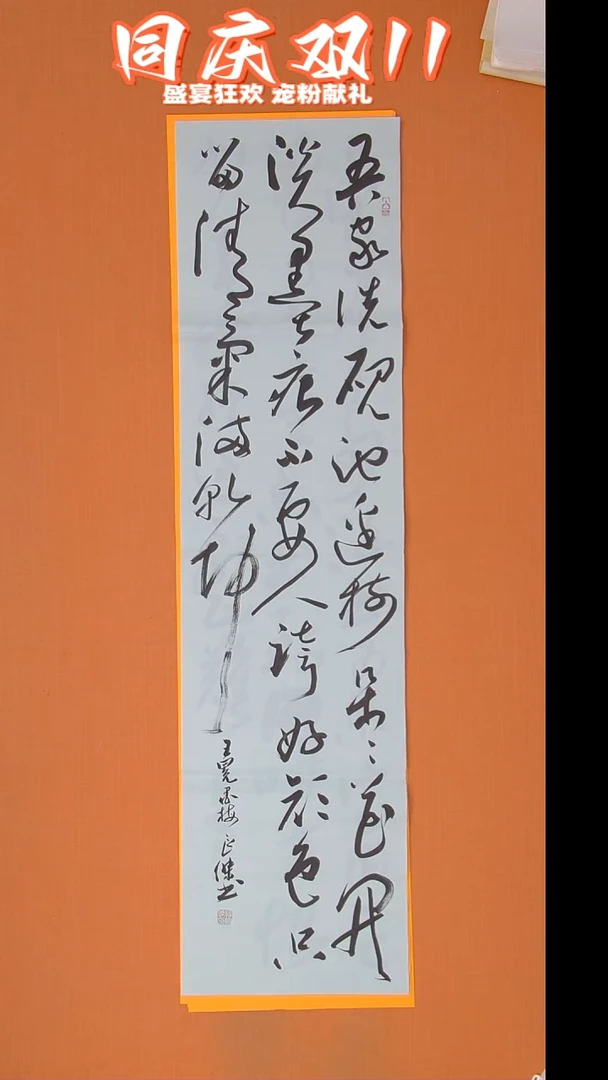 同庆双11
盛宴狂欢 宠粉献礼
吾家洗砚池边树朵々花开
淡墨痕不要人誇好颜色只
留清氣满乾坤
王冕墨梅